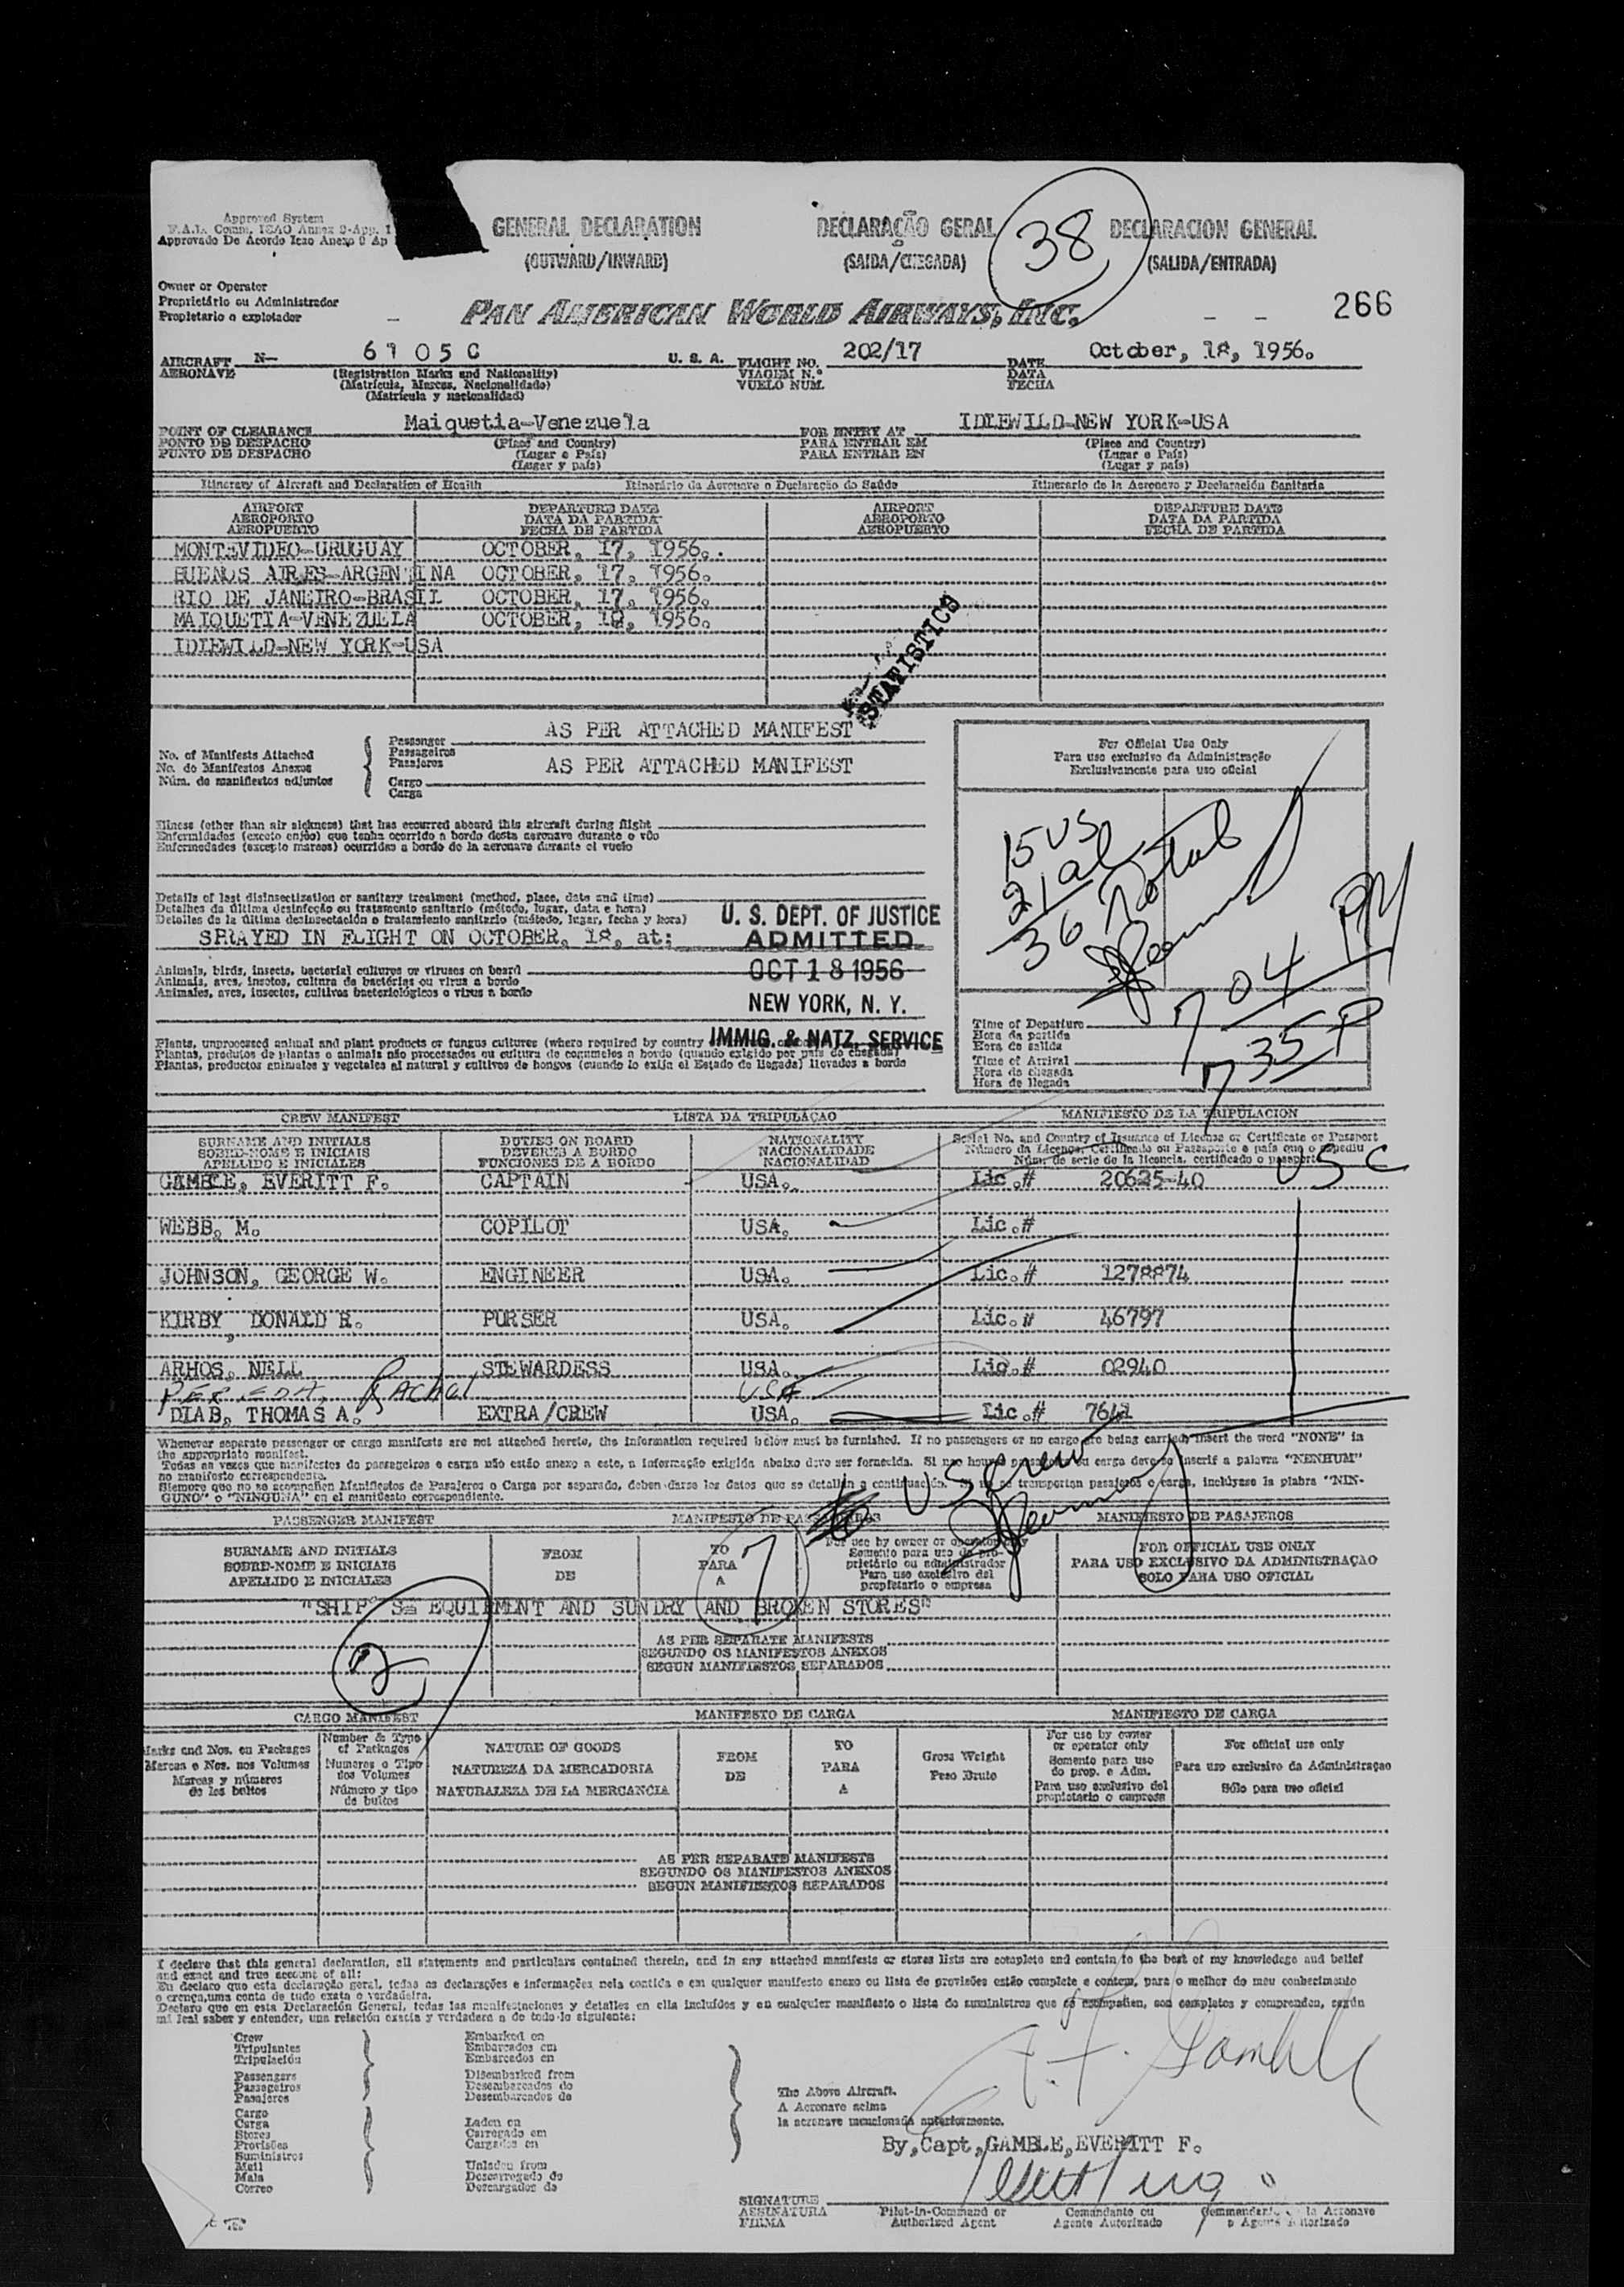 Approved System
F.A.L. Comm. ICAO Annex 9-App. 1
Approvado De Acordo Icao Anexo 9 Ap
GENERAL DECLARATION
(OUTWARD/INWARD)
DECLARAÇÃO GERAL
(SAIDA/CHEGADA)
38
DECLARACION GENERAL
(SALIDA/ENTRADA)
Owner or Operator
Proprietário ou Administrador
Propietario o explotador
PAN AMERICAN WORLD AIRWAYS, INC.
266
AIRCRAFT N- 6105C U. S. A. FLIGHT NO. 202/17 DATE October, 18, 1956.
AERONAVE (Registration Marks and Nationality) VIAGEM N.º DATA
(Matrícula, Marcas, Nacionalidade) VUELO NUM. FECHA
(Matrícula y nacionalidad)
POINT OF CLEARANCE Maiquetia-Venezuela FOR ENTRY AT IDLEWILD-NEW YORK-USA
PONTO DE DESPACHO (Place and Country) PARA ENTRAR EM (Place and Country)
PUNTO DE DESPACHO (Lugar e País) PARA ENTRAR EN (Lugar e País)
(Lugar y país) (Lugar y país)
Itinerary of Aircraft and Declaration of Health Itinerário da Aeronave e Declaração de Saúde Itinerario de la Aeronave y Declaración Sanitaria
AIRPORT DEPARTURE DATE AIRPORT DEPARTURE DATE
AEROPORTO DATA DA PARTIDA AEROPORTO DATA DA PARTIDA
AEROPUERTO FECHA DE PARTIDA AEROPUERTO FECHA DE PARTIDA
MONTEVIDEO-URUGUAY OCTOBER, 17, 1956.
BUENOS AIRES-ARGENTINA OCTOBER, 17, 1956.
RIO DE JANEIRO-BRASIL OCTOBER, 17, 1956.
MAIQUETIA-VENEZUELA OCTOBER, 18, 1956.
IDLEWILD-NEW YORK-USA
STATISTICS
No. of Manifests Attached
No. de Manifestos Anexos
Núm. de manifiestos adjuntos
Passenger AS PER ATTACHED MANIFEST
Passageiros
Pasajeros
Cargo AS PER ATTACHED MANIFEST
Carga
For Official Use Only
Para uso exclusivo da Administração
Exclusivamente para uso oficial
15 US
21 al
36 Total
Illness (other than air sickness) that has occurred aboard this aircraft during flight
Enfermidades (exceto enjôo) que tenha ocorrido a bordo desta aeronave durante o vôo
Enfermedades (excepto mareos) ocurridas a bordo de la aeronave durante el vuelo
Details of last disinsectization or sanitary treatment (method, place, date and time)
Detalhes da última desinfeção ou tratamento sanitario (método, lugar, data e hora)
Detalles de la última desinsectación o tratamiento sanitario (método, lugar, fecha y hora)
SPRAYED IN FLIGHT ON OCTOBER, 18, at:
U. S. DEPT. OF JUSTICE
ADMITTED
OCT 18 1956
NEW YORK, N. Y.
IMMIG. & NATZ. SERVICE
Animals, birds, insects, bacterial cultures or viruses on board
Animais, aves, insetos, cultura de bactérias ou virus a bordo
Animales, aves, insectos, cultivos bacteriológicos o virus a bordo
Plants, unprocessed animal and plant products or fungus cultures (where required by country
Plantas, produtos de plantas e animais não processados ou cultura de cogumelos a bordo (quando exigido por país de chegada)
Plantas, productos animales y vegetales al natural y cultivos de hongos (cuando lo exija el Estado de llegada) llevados a bordo
Time of Departure 7 04 PM
Hora da partida
Hora de salida
Time of Arrival 7 35 P
Hora da chegada
Hora de llegada
CREW MANIFEST LISTA DA TRIPULAÇAO MANIFIESTO DE LA TRIPULACION
SURNAME AND INITIALS DUTIES ON BOARD NATIONALITY Serial No. and Country of Issuance of License or Certificate or Passport
SOBRE-NOME E INICIAIS DEVERES A BORDO NACIONALIDADE Número da Licença, Certificado ou Passaporte e país que o expediu
APELLIDO E INICIALES FUNCIONES DE A BORDO NACIONALIDAD Núm. de serie de la licencia, certificado o pasaporte
GAMBLE, EVERITT F. CAPTAIN USA. Lic.# 20625-40 USC
WEBB, M. COPILOT USA. Lic.#
JOHNSON, GEORGE W. ENGINEER USA. Lic.# 1278874
KIRBY, DONALD R. PURSER USA. Lic.# 46797
ARHOS, NELL STEWARDESS USA. Lic.# 02940
PEREDA Rachel USA
DIAB, THOMAS A. EXTRA/CREW USA. Lic.# 7641
Whenever separate passenger or cargo manifests are not attached hereto, the information required below must be furnished. If no passengers or no cargo are being carried, insert the word "NONE" in
the appropriate manifest.
Todas as vezes que manifestos de passageiros e carga não estão anexo a este, a informação exigida abaixo deve ser fornecida. Si não houver passageiros ou carga deve-se inserir a palavra "NENHUM"
no manifesto correspondente.
Siempre que no se acompañen Manifiestos de Pasajeros o Carga por separado, deben darse los datos que se detallan a continuación. Si no se transportan pasajeros o carga, inclúyase la plabra "NIN-
GUNO" o "NINGUNA" en el manifiesto correspondiente.
US crew
PASSENGER MANIFEST MANIFESTO DE PASSAGEIROS MANIFIESTO DE PASAJEROS
SURNAME AND INITIALS FROM TO For use by owner or operator only FOR OFFICIAL USE ONLY
SOBRE-NOME E INICIAIS DE PARA Somente para uso do pro- PARA USO EXCLUSIVO DA ADMINISTRAÇAO
APELLIDO E INICIALES A prietário ou administrador SOLO PARA USO OFICIAL
Para uso exclusivo del
propietario o empresa
7
"SHIP'S= EQUIPMENT AND SUNDRY AND BROKEN STORES"
AS PER SEPARATE MANIFESTS
SEGUNDO OS MANIFESTOS ANEXOS
SEGUN MANIFIESTOS SEPARADOS
2
CARGO MANIFEST MANIFESTO DE CARGA MANIFIESTO DE CARGA
Marks and Nos. on Packages Number & Type of Packages NATURE OF GOODS FROM TO Gross Weight For use by owner or operator only For official use only
Marcas e Nos. nos Volumes Numeros e Tipo dos Volumes NATUREZA DA MERCADORIA DE PARA Peso Bruto Somente para uso do prop. e Adm. Para uso exclusivo da Administraçao
Marcas y números de los bultos Número y tipo de bultos NATURALEZA DE LA MERCANCIA A Para uso exclusivo del propietario o empresa Sólo para uso oficial
AS PER SEPARATE MANIFESTS
SEGUNDO OS MANIFESTOS ANEXOS
SEGUN MANIFIESTOS SEPARADOS
I declare that this general declaration, all statements and particulars contained therein, and in any attached manifests or stores lists are complete and contain to the best of my knowledge and belief
and exact and true account of all:
Eu declaro que esta declaração geral, todas as declarações e informações nela contida e em qualquer manifesto anexo ou lista de provisões estão complete e contem, para o melhor do meu conhecimento
e crença,uma conta de tudo exata e verdadeira.
Declaro que en esta Declaración General, todas las manifestaciones y detalles en ella incluídos y en cualquier manifiesto o lista de suministros que se acompañen, son completos y comprenden, según
mi leal saber y entender, una relación exacta y verdadera a de todo lo siguiente:
Crew
Tripulantes
Tripulación
Passengers
Passageiros
Pasajeros
Cargo
Carga
Stores
Provisões
Suministros
Mail
Mala
Correo
Embarked on
Embarcados em
Embarcados en
Disembarked from
Desembarcados do
Desembarcados de
Laden on
Carregado em
Cargados en
Unladen from
Descarregado do
Descargados de
The Above Aircraft.
A Aeronave acima
la aeronave mencionada anteriormente.
E. F. Gamble
By,Capt,GAMBLE,EVERITT F.
SIGNATURE
ASSINATURA
FIRMA
Pilot-in-Command or Authorized Agent
Comandante ou Agente Autorizado